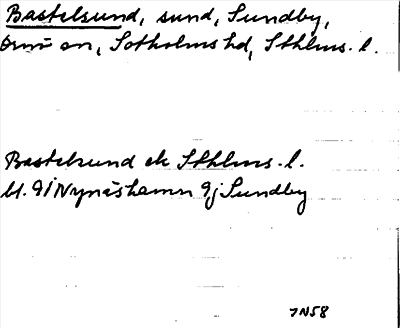 Bastelsund, sund, Sundby,
Ornö sn, Sotholms hd, Sthlms. l.
Bastelsund ek Sthlms. l.
bl. 9i Nynäshamn 9j Sundby
JN58